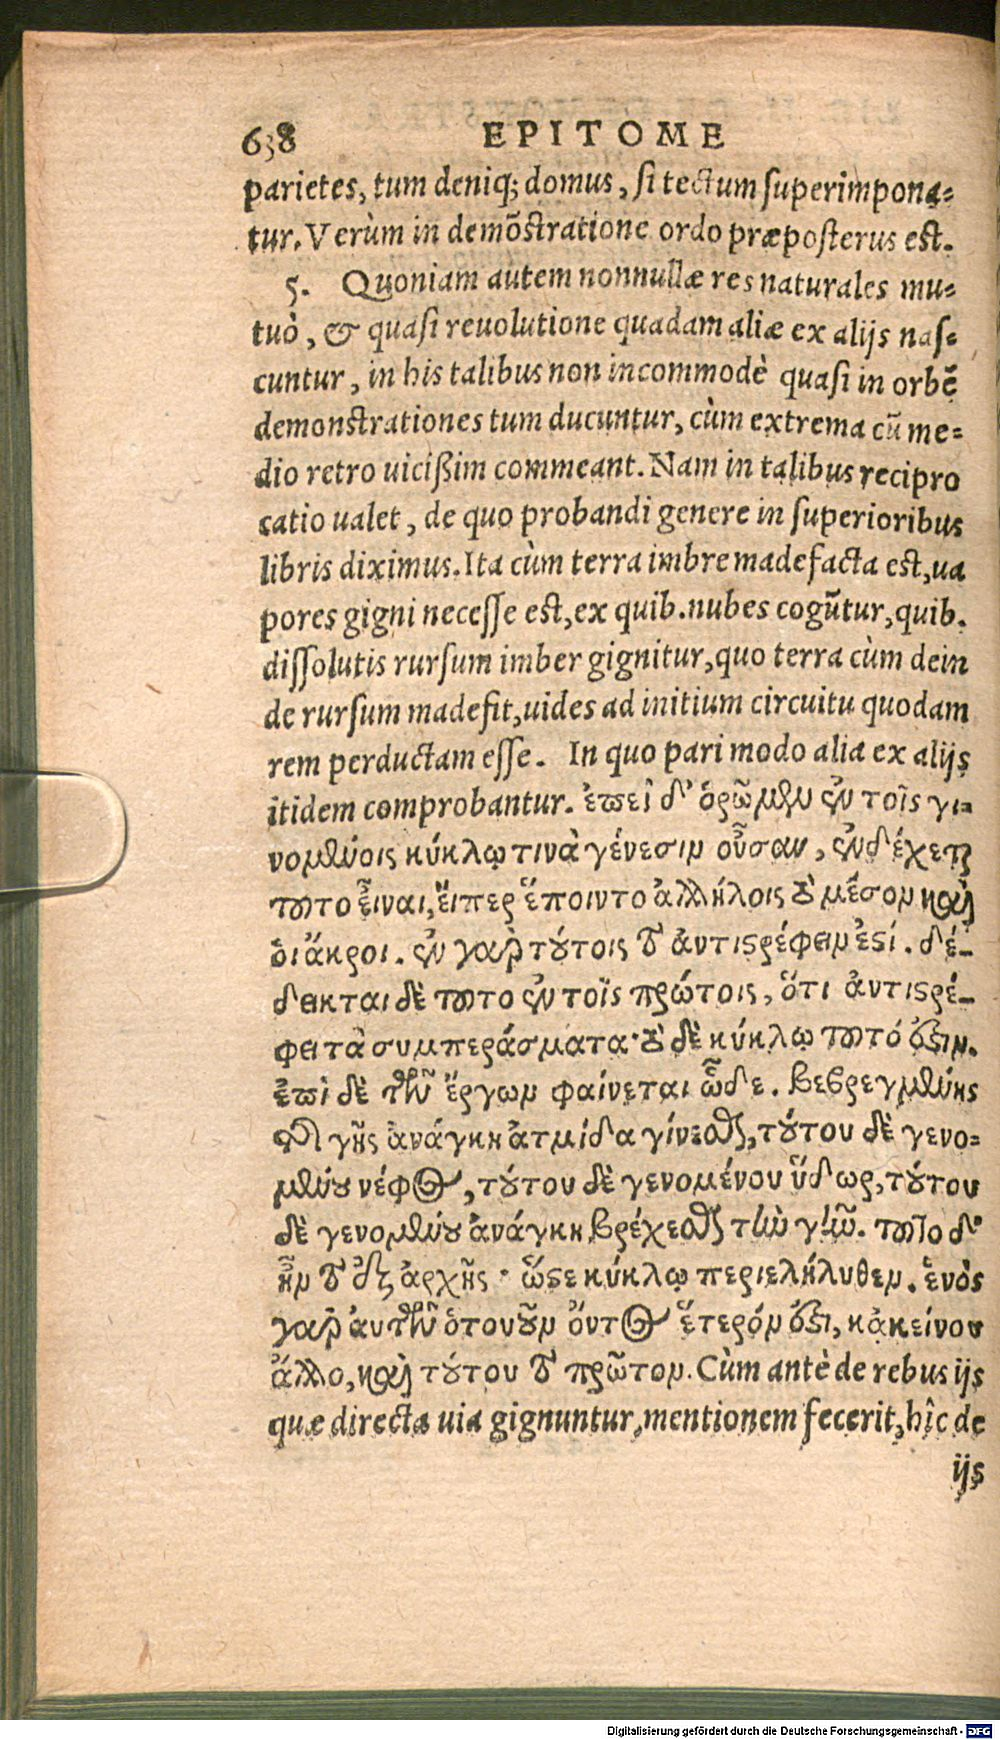 638 EPITOME
parietes, tum deniq; domus, si tectum superimpona-
tur. Verùm in demõstratione ordo præposterus est.
5. Quoniam autem nonnullæ res naturales mu-
tuò, & quasi reuolutione quadam aliæ ex alijs nas-
cuntur, in his talibus non incommodè quasi in orbẽ
demonstrationes tum ducuntur, cùm extrema cũ me-
dio retro uicißim commeant. Nam in talibus recipro
catio ualet, de quo probandi genere in superioribus
libris diximus. Ita cùm terra imbre madefacta est, ua
pores gigni necesse est, ex quib. nubes cogũtur, quib.
dissolutis rursum imber gignitur, quo terra cùm dein
de rursum madefit, uides ad initium circuitu quodam
rem perductam esse. In quo pari modo alia ex alijs
itidem comprobantur. ἐπεὶ δ' ὁρῶμεν ἐν τοῖς γι-
νομένοις κύκλῳ τινὰ γένεσιν οὖσαν, ἐνδέχεται
τοῦτο εἶναι, εἴπερ ἕποιντο ἀλλήλοις τὸ μέσον καὶ
ὁι ἄκροι. ἐν γὰρ τούτοις τὸ ἀντιστρέφειν ἐστί. δέ-
δεικται δὲ τοῦτο ἐν τοῖς πρώτοις, ὅτι ἀντιστρέ-
φει τὰ συμπεράσματα· τὸ δὲ κύκλῳ τοῦτό ἐστιν.
ἐπὶ δὲ τῶν ἔργων φαίνεται ὧδε. βεβρεγμένης
τῆς γῆς ἀνάγκη ἀτμίδα γίνεσθαι, τούτου δὲ γενο-
μένου νέφος, τούτου δὲ γενομένου ὕδωρ, τούτου
δὲ γενομένου ἀνάγκη βρέχεσθαι τὴν γῆν. τοῦτο δ'
ἦν τὸ ἐξ ἀρχῆς· ὥστε κύκλῳ περιελήλυθεν. ἑνὸς
γὰρ αὐτῶν ὁτουοῦν ὄντος ἕτερόν ἐστι, κἀκείνου
ἄλλο, καὶ τούτου τὸ πρῶτον. Cùm antè de rebus ijs
quæ directa uia gignuntur, mentionem fecerit, hîc de
ijs
Digitalisierung gefördert durch die Deutsche Forschungsgemeinschaft - DFG